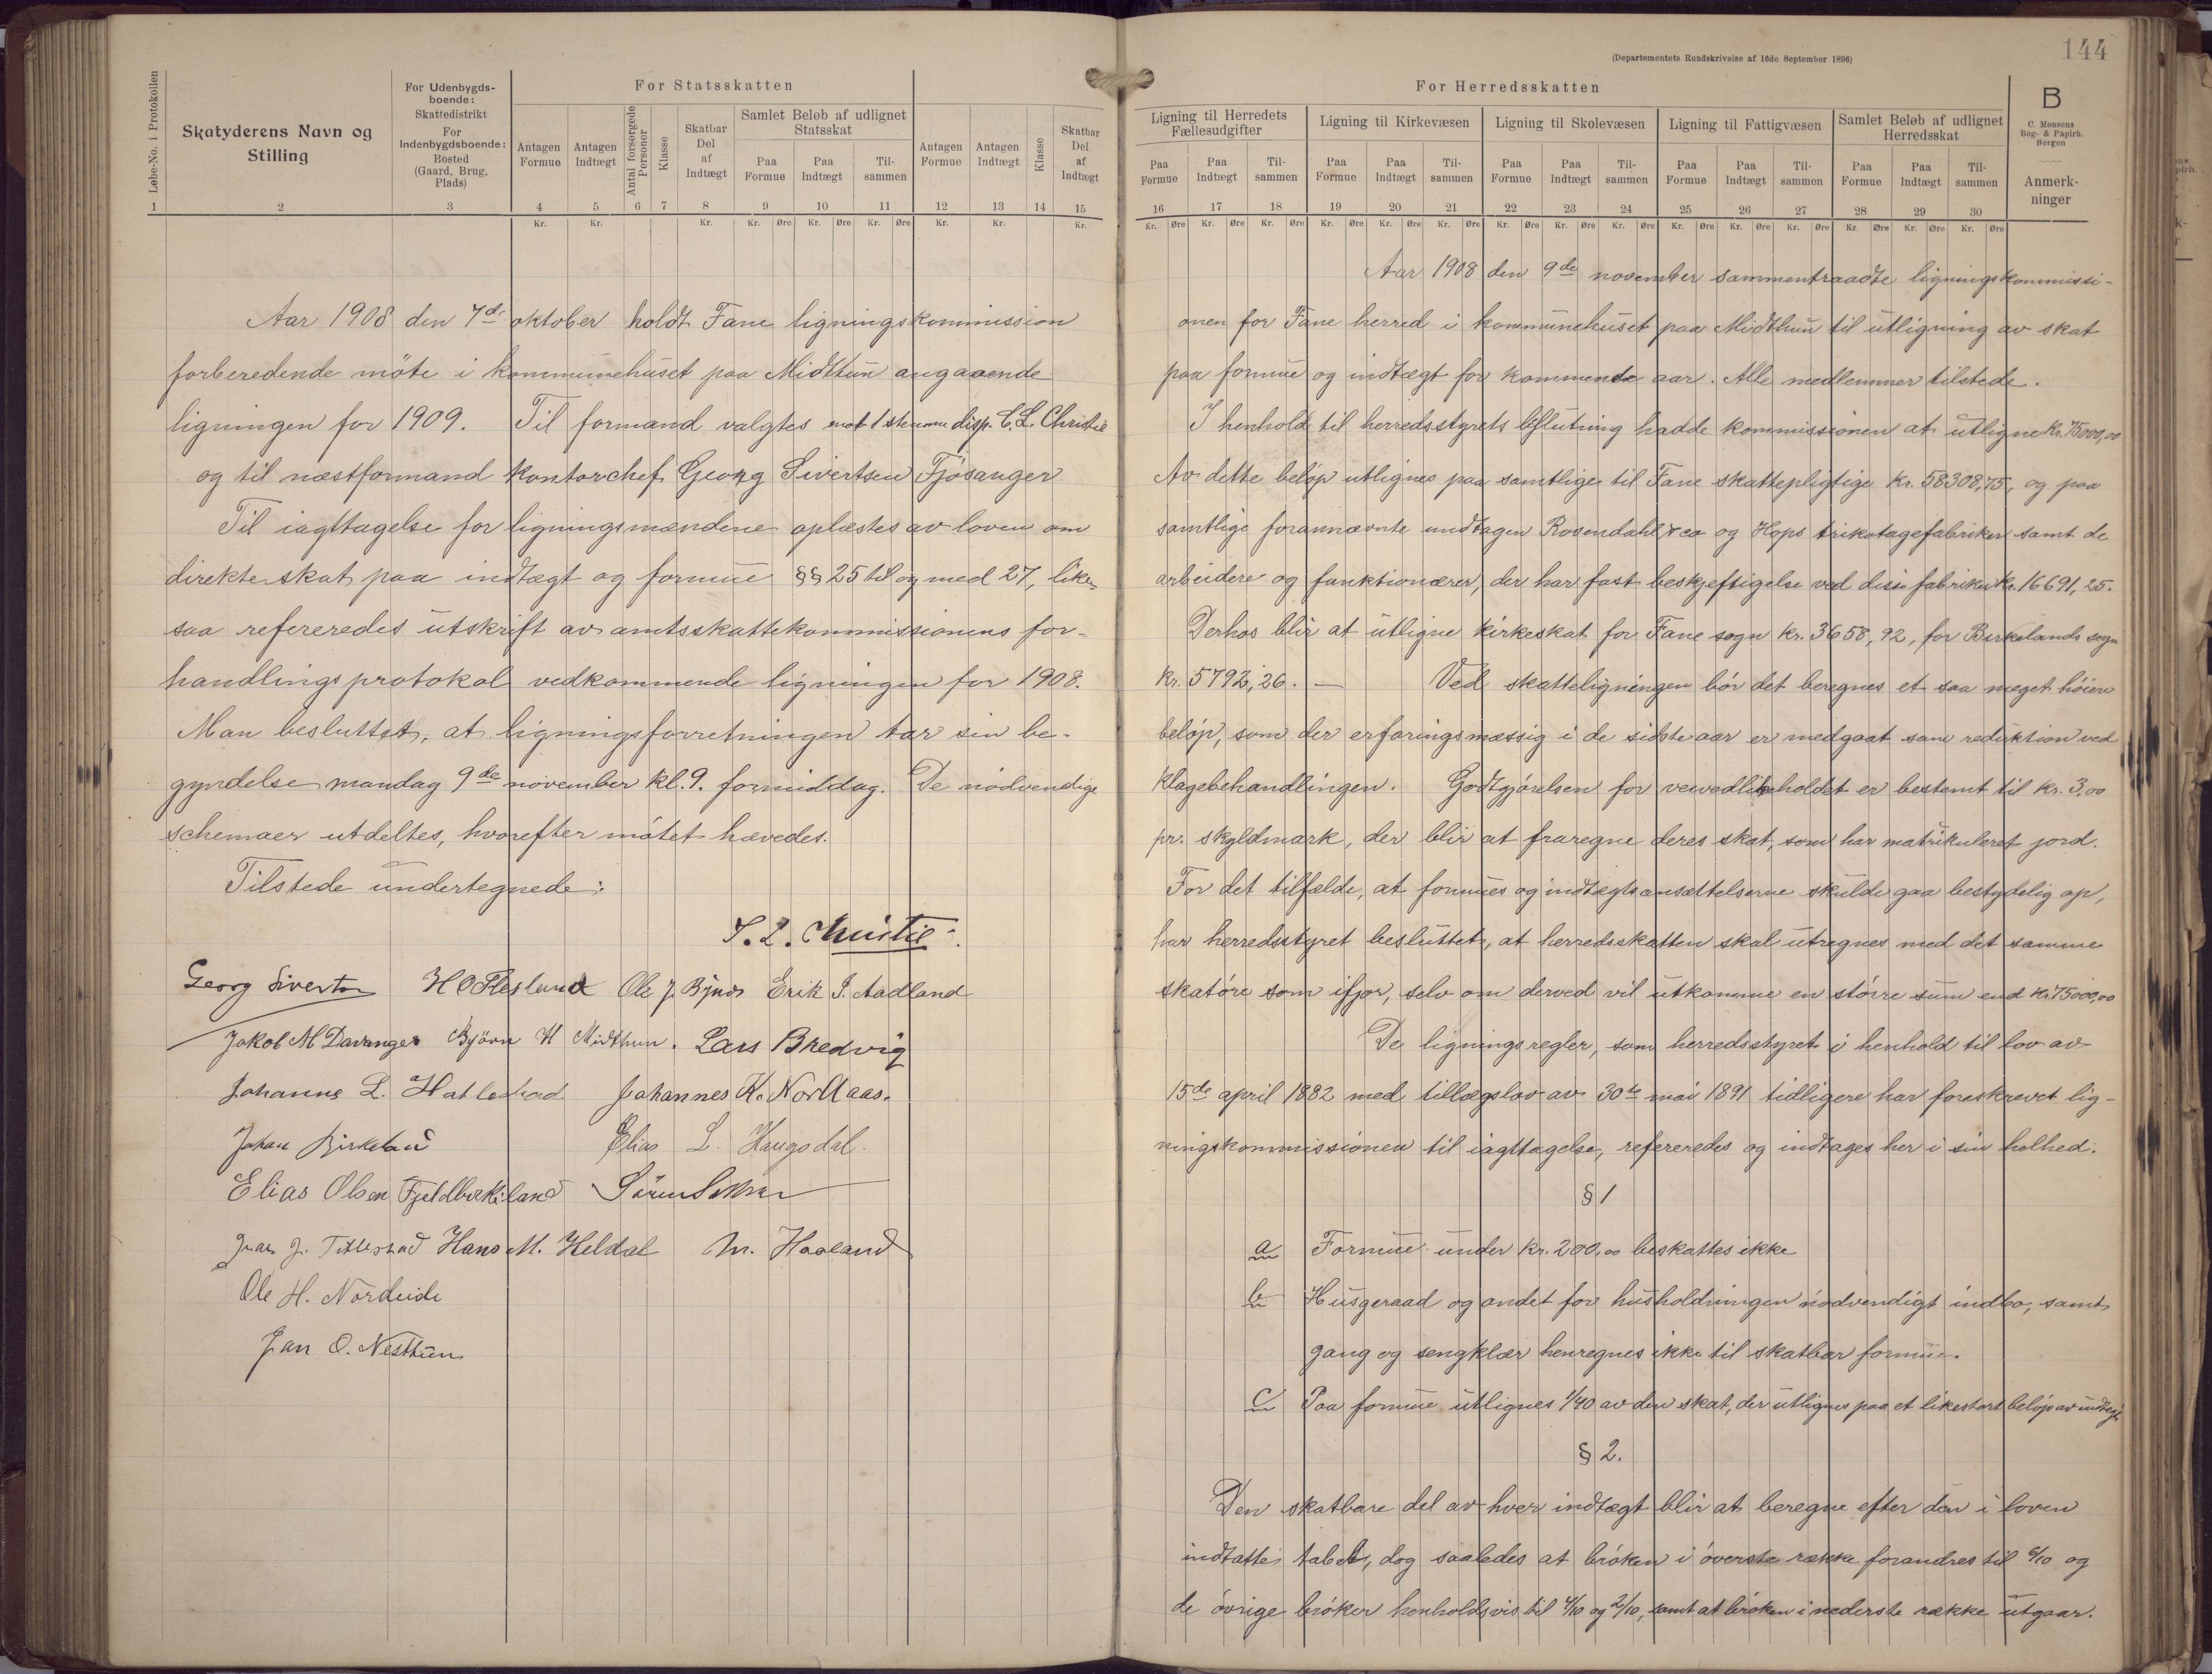 For Statsskatten
Løbe-No. i Protokollen
Skatyderens Navn og Stilling
For Udenbygdsboende: Skattedistrikt For Indenbygdsboende: Bosted (Gaard, Brug, Plads)
Antagen Formue
Antagen Indtægt
Antal forsørgede Personer
Klasse
Skatbar Del af Indtægt
Samlet Beløb af udlignet Statsskat
Paa Formue
Paa Indtægt
Tilsammen
Antagen Formue
Antagen Indtægt
Klasse
Skatbar Del af Indtægt
1 2 3 4 5 6 7 8 9 10 11 12 13 14 15
Kr. Kr. Kr. Kr. Øre Kr. Øre Kr. Øre Kr. Kr. Kr.
Aar 1908 den 7de oktober holdt Fane ligningskommission
forberedende möte i kommunehuset paa Midttun angaaende
ligningen for 1909. Til formand valgtes mot 1 stemme disp. C. L. Christie
og til næstformand kontorchef Georg Sivertsen Fjösanger
Til iagttagelse for ligningsmændene oplæstes av loven om
direkte skat paa indtægt og formue §§ 25 til og med 27, like-
saa refereredes utskrift av amtsskattekommissionens for-
handlingsprotokol vedkommende ligningen for 1908.
Man besluttet, at ligningsforretningen tar sin be-
gyndelse mandag 9de november kl. 9. formiddag. De nödvendige
schemaer utdeltes, hvorefter mötet hævedes.
Tilstede undertegnede:
S. L. Christie
Georg Sivertsen H O Flesland Ole J. Bynds Erik I. Aadland
Jakob M Davanger Byörn H Midthun. Lars Bredvig
Johannes L. Hatlestad Johannes K. Nordaas.
Johan Birkeland Elias L. Haugsdal.
Elias Olsen Fjeldbirkeland
J. Titlestad Hans M. Heldal M. Haaland
Ole H. Nordeide
Jan O. Nesttun
144
(Departementets Rundskrivelse af 16de September 1896)
For Herredsskatten
B
C. Monsens Bog- & Papirh. Bergen
Ligning til Herredets Fællesudgifter
Ligning til Kirkevæsen
Ligning til Skolevæsen
Ligning til Fattigvæsen
Samlet Beløb af udlignet Herredsskat
Paa Formue Paa Indtægt Tilsammen Paa Formue Paa Indtægt Tilsammen Paa Formue Paa Indtægt Tilsammen Paa Formue Paa Indtægt Tilsammen Paa Formue Paa Indtægt Tilsammen
Anmerkninger
16 17 18 19 20 21 22 23 24 25 26 27 28 29 30
Kr. Øre Kr. Øre Kr. Øre Kr. Øre Kr. Øre Kr. Øre Kr. Øre Kr. Øre Kr. Øre Kr. Øre Kr. Øre Kr. Øre Kr. Øre Kr. Øre Kr. Øre
Aar 1908 den 9de november sammentraadte ligningskommissi-
onen for Fane herred i kommunehuset paa Midthun til utligning av skat
paa formue og indtægt for kommende aar. Alle medlemmer tilstede.
I henhold til herredsstyrets beslutning hadde kommissionen at utligne kr. 75000,00
Av dette beløp utlignes paa samtlige til Fane skattepligtige kr. 58308,75, og paa
samtlige forannævnte undtagen Rosendahl & co og Hops trikotagefabriker samt de
arbeidere og funktionærer, der har fast beskjeftigelse ved disse fabriker kr. 16691,25.
Derhos blir at utligne kirkeskat for Fane sogn kr. 3658,92, for Birkelands sogn
kr. 5792,26. — Ved skatteligningen bör det beregnes et saa meget höiere
belöp, som der erfaringsmæssig i de sidste aar er medgaat som reduktion ved
klagebehandlingen. Godtgjörelsen for veivedlikeholdet er bestemt til kr. 3,00
pr. skyldmark, der blir at fraregne deres skat, som har matrikuleret jord.
For det tilfælde, at formues og indtægtsansættelserne skulde gaa bestydelig op,
har herredsstyret besluttet, at herredsskatten skal utregnes med det samme
skatöre som ifjor, selv om derved vil utkomme en större sum end kr. 75000,00
De ligningsregler, som herredsstyret i henhold til lov av
15de april 1882 med tillægslov av 30te mai 1891 tidligere har foreskrevet lig-
ningskommissionen til iagttagelse, refereredes og indtages her i sin helhed.
§ 1
a Formue under kr. 200,00 beskattes ikke
b Husgeraad og andet for husholdningen nödvendigt indbo, samt
gang og sengklær henregnes ikke til skatbar formue.
c Paa formue utlignes 1/40 av den skat, der utlignes paa et likestort belöp av indtægt
§ 2.
Den skatbare del av hver indtægt blir at beregne efter den i loven
indtatte tabel, dog saaledes at bröken i överste række forandres til 6/10 og
de övrige bröker henholdsvis til 4/10 og 2/10, samt at bröken i nederste række utgaar.